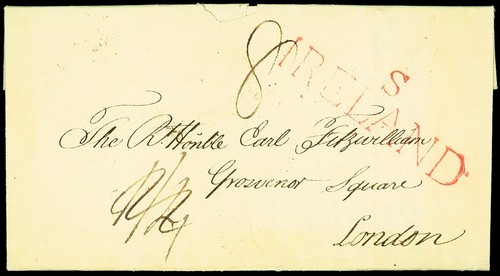 8
S
IRELAND
The Rt. Honble Earl Fitzwilliam
Grosvenor Square
London